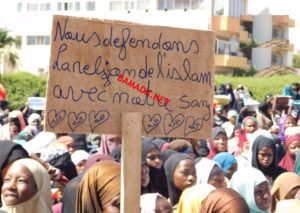 Nous defendons
La religion de l'islam
avec notre Sang
BAMADA.NET